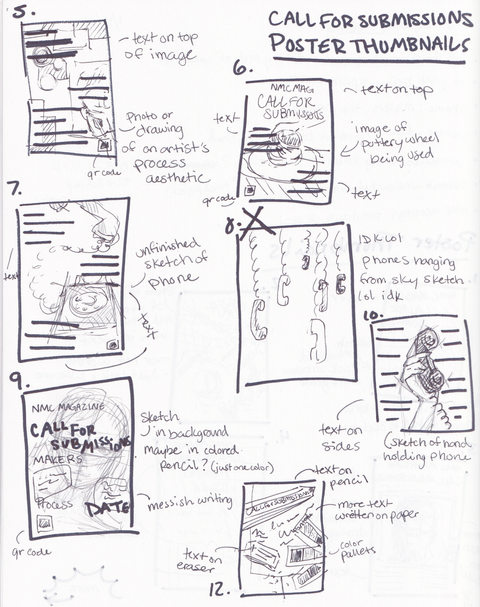 CALL FOR SUBMISSIONS
POSTER THUMBNAILS
5.
text on top
of image
photo or
drawing
of an artist's
process
aesthetic
qr code
6.
NMC MAG
CALL FOR
SUBMISSIONS
text on top
text
image of
pottery wheel
being used
text
qr code
7.
unfinished
sketch of
phone
text
text
8.
IDK lol
phones hanging
from sky sketch
lol idk
9.
NMC MAGAZINE
CALL FOR
SUBMISSIONS
MAKERS
PROCESS
DATE
Sketch
in background
maybe in colored
pencil? (just one color)
messish writing
qr code
10.
text on
sides
(sketch of hand
holding phone
12.
CALL FOR SUBMISSIONS
text on
pencil
more text
written on paper
color
pallets
text on
eraser